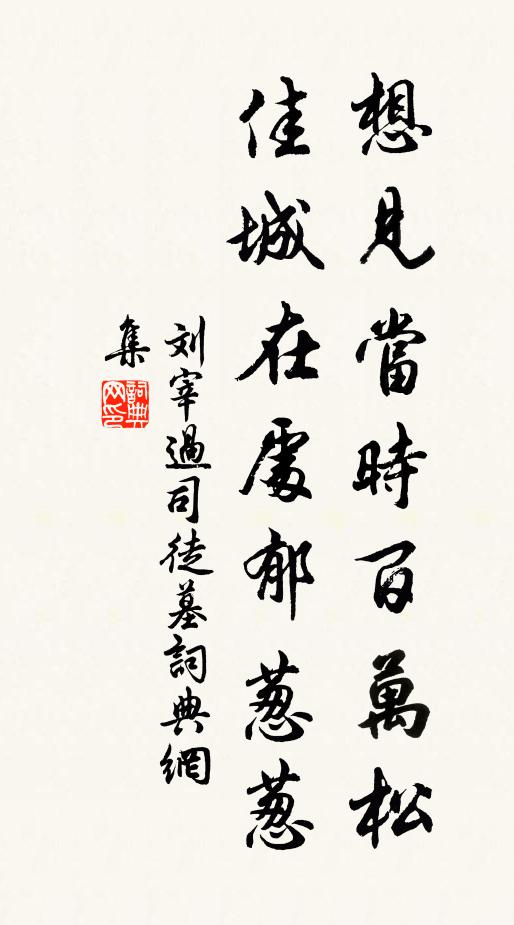 想見當時百萬松
佳城在處郁葱葱
刘宰過司徒墓詞典網
集
詞典網印